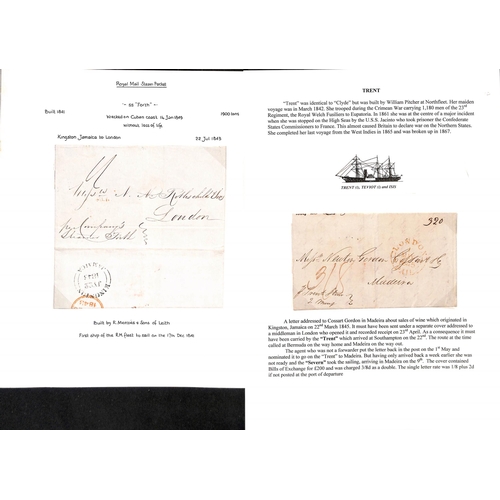 Royal Mail Steam Packet
SS "Forth"
Built 1841
Wrecked on Cuban coast 14 Jan 1849
1900 tons
without loss of life
Kingston Jamaica to London
22 Jul 1843
London
Built by R. Menzies & Sons of Leith
First ship of the R.M. fleet to sail on the 17th Dec 1841
TRENT
"Trent" was identical to "Clyde" but was built by William Pitcher at Northfleet. Her maiden
voyage was in March 1842. She trooped during the Crimean War carrying 1,180 men of the 23rd
Regiment, the Royal Welch Fusiliers to Eupatoria. In 1861 she was at the centre of a major incident
when she was stopped on the High Seas by the U.S.S. Jacinto who took prisoner the Confederate
States Commissioners to France. This almost caused Britain to declare war on the Northern States.
She completed her last voyage from the West Indies in 1865 and was broken up in 1867.
TRENT (i), TEVIOT (i) and ISIS
920
LONDON
Madeira
A letter addressed to Cossart Gordon in Madeira about sales of wine which originated in
Kingston, Jamaica on 22nd March 1845. It must have been sent under a separate cover addressed to
a middleman in London who opened it and recorded receipt on 23rd April. As a consequence it must
have been carried by the "Trent" which arrived at Southampton on the 22nd. The route at the time
called at Bermuda on the way home and Madeira on the way out.
The agent who was not a forwarder put the letter back in the post on the 1st May and
nominated it to go on the "Trent" to Madeira. But having only arrived back a week earlier she was
not ready and the "Severn" took the sailing, arriving in Madeira on the 9th. The cover contained
Bills of Exchange for £200 and was charged 3/8d as a double. The single letter rate was 1/8 plus 2d
if not posted at the port of departure